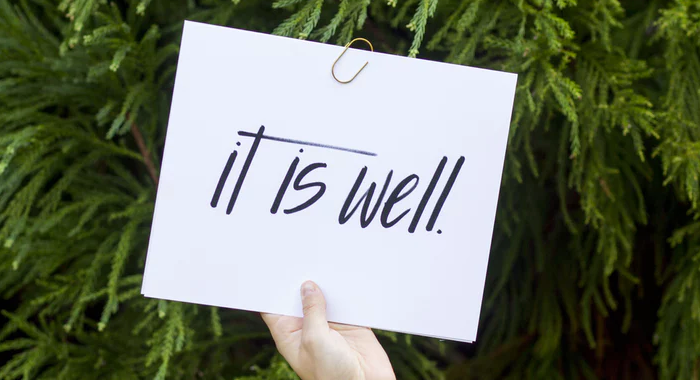 it is well.